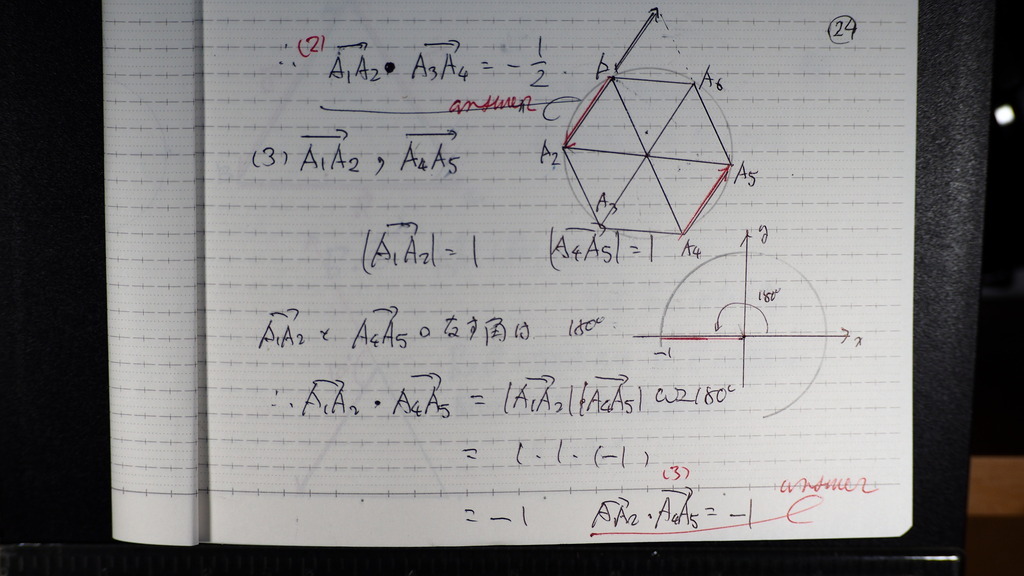 (24)
∴ (2) A₁A₂ • A₃A₄ = -1/2.
answer
(3) A₁A₂ , A₄A₅
|A₁A₂| = 1 |A₄A₅| = 1
A₁A₂ と A₄A₅ の なす角は 180°
∴ A₁A₂ • A₄A₅ = |A₁A₂||A₄A₅| cos180°
= 1・1・(-1)
= -1 (3) A₁A₂・A₄A₅ = -1
answer
A₆
A₂
A₅
A₃
A₄
y
180°
x
-1